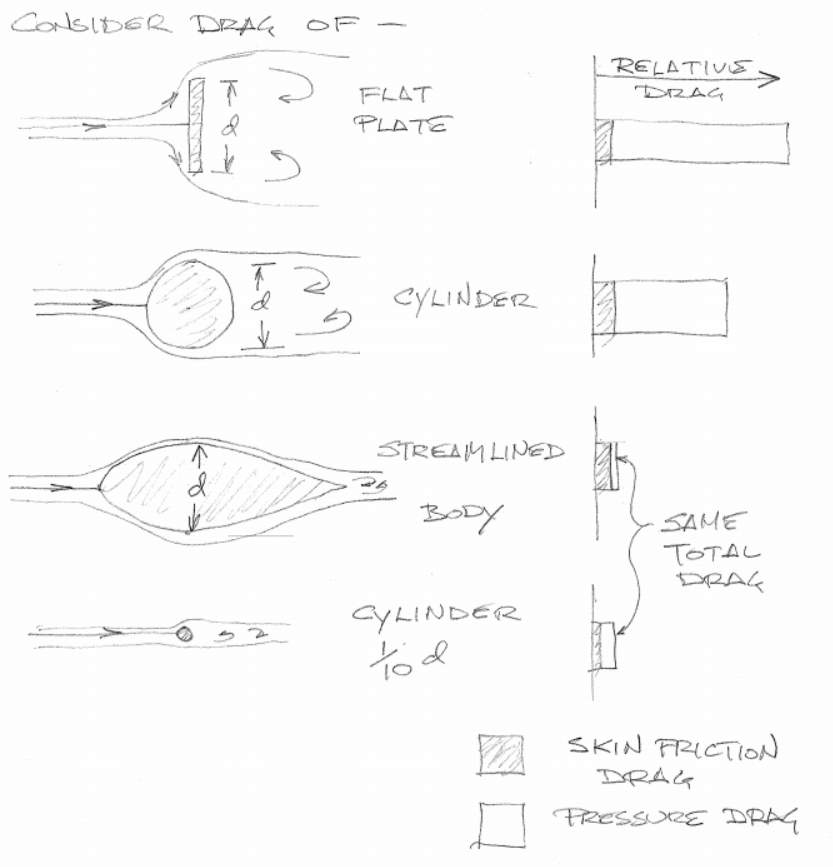 CONSIDER DRAG OF —
d
FLAT
PLATE
RELATIVE
DRAG
d
CYLINDER
d
STREAMLINED
BODY
SAME
TOTAL
DRAG
CYLINDER
1/10 d
SKIN FRICTION
DRAG
PRESSURE DRAG